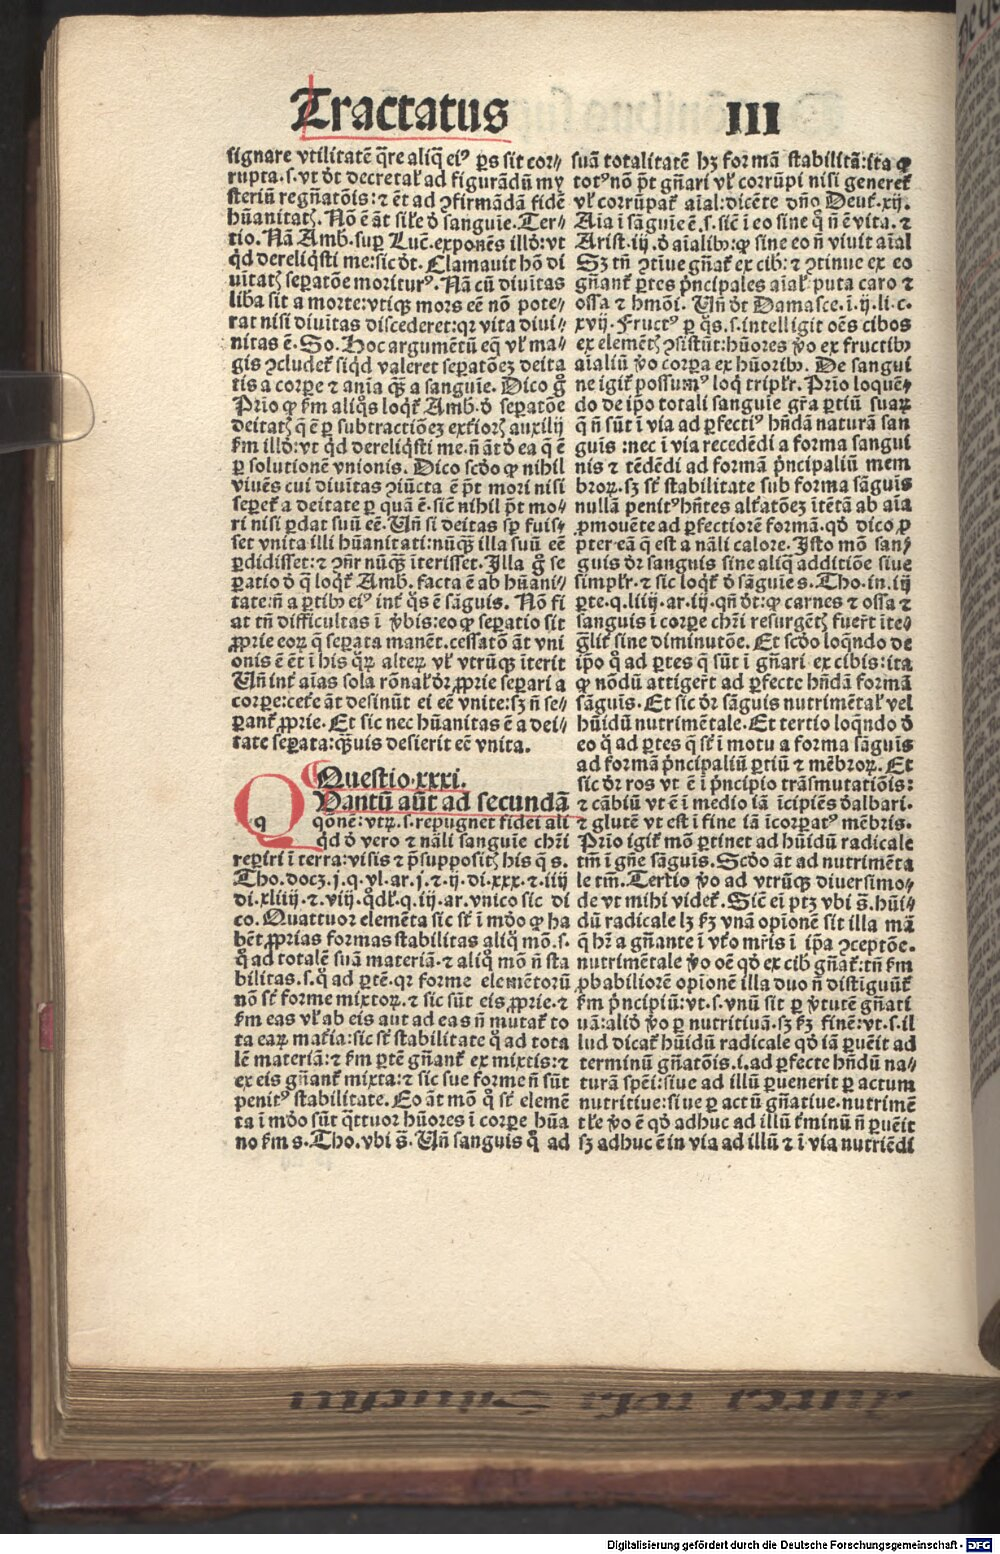 Tractatus III
signare vtilitatē q̄re aliq̄ eiꝰ ꝑs sit cor⸗
rupta.s.vt ðt decretal̓ ad figurādū my
steriū regn̄atōis: ⁊ ēt ad ꝯfirmādā fidē
hūanitatꝭ. Nō ē āt sil̓e ð sanguīe. Ter⸗
tio. Nā Amb. suꝑ Lucē. exponēs illð: vt
qͥd dereliqͥsti me: sic ðt. Clamauit hō di
uītatꝭ seꝑatōe morituꝰ. Nā cū diuītas
lib̓a sit a morte: vtiqꝫ mors eē nō pote⸗
rat nisi diuītas discederet: qꝛ vita diui⸗
nitas ē. So. Hoc argumētū eq̄ vl̓ ma⸗
gis ꝯcludet̓ siqͥd valeret seꝑatōeꝫ deita
tis a corꝑe ⁊ aīa qꝫ̄ a sanguīe. Dico g̊
Prīo ꝙ ẜm aliqͦs loqͥt̓ Amb. ð seꝑatōe
deitatꝭ q̄ ē ꝑ subtractiōeꝫ exterioꝝ auxilij
ẜm illð: vt qͥd dereliqͥsti me. n̄ āt ð ea q̄ ē
ꝑ solutionē vnionis. Dico scðo ꝙ nihil
viuēs cui diuītas ꝯiūcta ē pt̄ mori nisi
seꝑet̓ a deitate ꝑ quā ē. sic̄ nihil pt̄ mo⸗
ri nisi ꝑdat suū eē. Vn̄ si deitas sꝑ fuis⸗
set vnita illi hūanitati: nūqꝫ̄ illa suū eē
ꝑdidisset: ⁊ ꝯn̄r nūqꝫ̄ īterisset. Illa g̊ se
ꝑatio ð q̄ loqͥt̓ Amb. facta ē ab hūani⸗
tate: n̄ a ꝑtibꝰ eiꝰ int̓ qͦs ē sāguis. Nō fi
at tn̄ difficultas ī v̓bis: eo ꝙ seꝑatio sit
ꝓprie eoꝝ q̄ seꝑata manēt. cessatō āt vni
onis ē ēt ī his qͦꝝ alteꝝ vl̓ vtrūqꝫ īterit
Vn̄ int̓ aīas sola rōnal̓ ðr ꝓprie seꝑari a
corꝑe: cet̓e āt desinūt ei eē vnite: sꝫ n̄ se⸗
ꝑant̓ ꝓprie. Et sic nec hūanitas ē a dei⸗
tate seꝑata: qꝫ̄uis desierit eē vnita.
Questio.xxxi.
Qvantū aūt ad secundā
q̄onē: vtꝝ.s.repugnet fidei ali
qͥd ð vero ⁊ nāli sanguīe chr̄i
reꝑiri ī terra: visis ⁊ p̄suppositꝭ his q̄ s.
Tho. docꝫ.j.q.vl.ar.j.⁊.ij.di.xxx.⁊.iiij
di.xliiij.⁊.viij.qͦdl̓.q.iij.ar.vnico sic di
co. Quattuor elemēta sic st̓ ī mðo ꝙ ha
bēt ꝓprias formas stabilitas aliqͦ mō.s.
qͦ ad totalē suā materiā. ⁊ aliqͦ mō n̄ sta
bilitas.s.qͦ ad ꝑtē. qꝛ forme elemētorū
nō st̓ forme mixtoꝝ. ⁊ sic sūt eis ꝓprie. ⁊
ẜm eas vl̓ ab eis aut ad eas n̄ mutat̓ to
ta eaꝝ mat̓ia: sic st̓ stabilitate qͦ ad tota
lē materiā: ⁊ ẜm ꝑtē gn̄ant̓ ex mixtis: ⁊
ex eis gn̄ant̓ mixta: ⁊ sic sue forme n̄ sūt
penitꝰ stabilitate. Eo āt mō qͦ st̓ elemē
ta ī mðo sūt qͣttuor hūores ī corꝑe hūa
no ẜm s. Tho. vbi s̄. Vn̄ sanguis qͦ ad
suā totalitatē hꝫ formā stabilitā: ita ꝙ
totꝰ nō pt̄ gn̄ari vl̓ corrūpi nisi generet̓
vl̓ corrūpat̓ aīal: dicēte dn̄o Deut̓.xij.
Aīa ī sāguīe ē.s. sic̄ ī eo sine qͦ n̄ ē vita. ⁊
Arist.iij. ð aīalibꝰ: ꝙ sine eo n̄ viuit aīal
Sꝫ tn̄ ꝯtīue gn̄at̓ ex cibꝭ: ⁊ ꝯtinue ex eo
gn̄ant̓ ꝑtes pͥncipales aīal̓ puta caro ⁊
ossa ⁊ hmōi. Vn̄ ðt Damasce.ī.ij.li.c.
xvij. Fructꝰ ꝑ qͦs.s.intelligit oēs cibos
ex elemētꝭ ꝯsistūt: hūores ꝟo ex fructibꝰ
aīaliū ꝟo corꝑa ex hūoribꝰ. De sangui
ne igit̓ possumꝰ loqͥ tripl̓r. Prīo loquē⸗
do de ip̄o totali sanguīe gr̄a ꝑtiū suaꝝ
q̄ n̄ sūt ī via ad ꝑfectiꝰ hn̄dā naturā san
guis: nec ī via recedēdi a forma sangui
nis ⁊ tēdēdi ad formā pͥncipaliū mem
broꝝ. sꝫ st̓ stabilitate sub forma sāguīs
nullā penitꝰ hn̄tes alt̓atōeꝫ ītētā ab aīa
ꝓmouēte ad ꝑfectiorē formā. qð dico ꝓ
pter eā q̄ est a nāli calore. Isto mō san⸗
guis ðr sanguis sine aliq̄ additiōe siue
simpl̓r. ⁊ sic loqͥt̓ ð sāguīe s. Tho. in.iij
ꝑte.q.liiij.ar.iij.qn̄ ðt: ꝙ carnes ⁊ ossa ⁊
sanguis ī corꝑe chr̄i resurgētꝭ fuer̄t īte⸗
gͣlit̓ sine diminutōe. Et scðo loqn̄do de
ip̄o qͦ ad ꝑtes q̄ sūt ī gn̄ari ex cibis: ita
ꝙ nōdū attiger̄t ad ꝑfecte hn̄dā formā
sāguīs. Et sic ðr sāguis nutrimētal̓ vel
hūidū nutrimētale. Et tertio loqn̄do ð
eo qͦ ad ꝑtes q̄ st̓ ī motu a forma sāguīs
ad formā pͥncipaliū ꝑtiū ⁊ mēbroꝝ. Et
sic ðr ros vt ē ī pͥncipio trāsmutatiōis:
⁊ cābiū vt ē ī medio iā īcipiēs ðalbari.
⁊ glutē vt est ī fine iā īcorꝑatꝰ mēbris.
Prīo igit̓ mō ꝑtinet ad hūidū radicale
tm̄ ī gn̄e sāguīs. Scðo āt ad nutrimēta
le tm̄. Tertio ꝟo ad vtrūqꝫ diuersimo⸗
de vt mihi videt̓. Sic̄ ei ptꝫ vbi s̄. hūi⸗
dū radicale ẜꝫ vnā opionē sit illa mā
q̄ hr̄ a gn̄ante ī vt̓o mr̄is ī ip̄a ꝯceptōe.
nutrimētale ꝟo oē qð ex cibꝭ gn̄at̓: tn̄ ẜm
ꝓbabiliorē opionē illa duo n̄ distīguūt̓
ẜm pͥncipiū: vt.s.vnū sit ꝑ v̓tutē gn̄ati
uā: alið ꝟo ꝑ nutritiuā. sꝫ ẜꝫ finē: vt.s.il
lud dicat̓ hūidū radicale qð iā ꝑuēit ad
terminū gn̄atōis.i.ad ꝑfecte hn̄dū na⸗
turā spēi: siue ad illū ꝑuenerit ꝑ actum
nutritiue: siue ꝑ actū gn̄atiue. nutrimē
tl̓e ꝟo ē qð adhuc ad illū t̓minū n̄ ꝑuēit
sꝫ adhuc ē in via ad illū ⁊ ī via nutriēdi
Digitalisierung gefördert durch die Deutsche Forschungsgemeinschaft - DFG